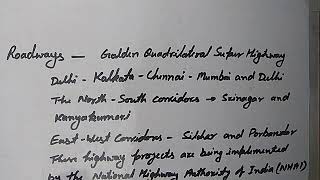 Roadways — Golden Quadrilateral Super Highway
Delhi - Kolkata - Chennai - Mumbai and Delhi
The North - South corridors → Srinagar and
Kanyakumari
East-West Corridors - Silcher and Porbandar
These highway projects are being implemented
by the National Highway Authority of India (NHAI)